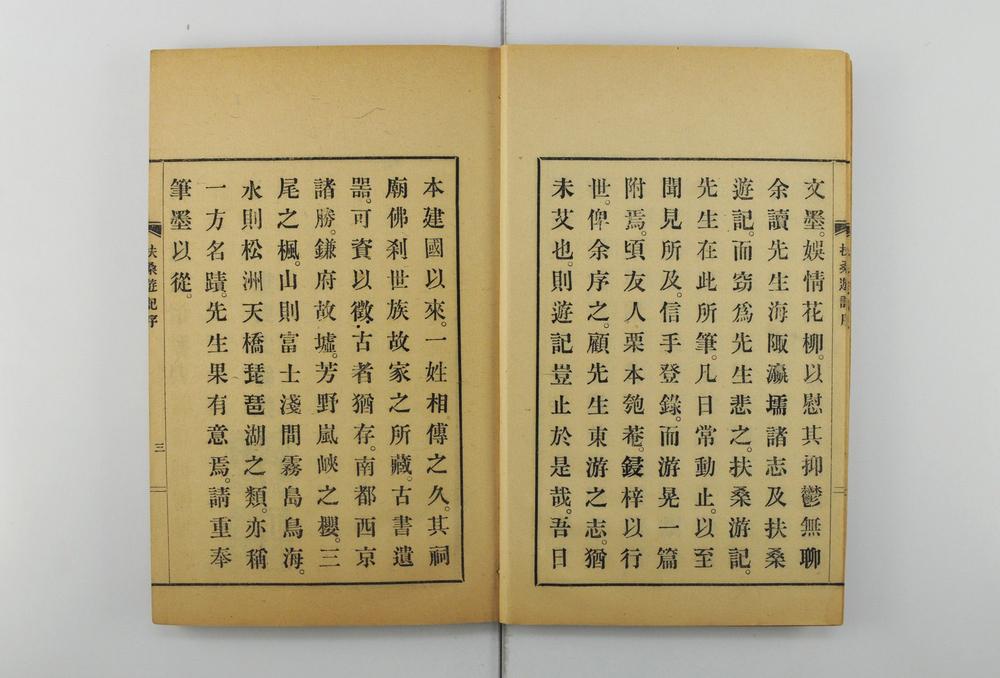 文墨。娛情花柳。以慰其抑鬱無聊
余讀先生海陬瀛壖諸志及扶桑
遊記。而窃爲先生悲之。扶桑游記。
先生在此所筆。凡日常動止。以至
聞見所及。信手登錄。而游晃一篇
附焉。頃友人栗本匏菴。鋟梓以行
世。俾余序之。顧先生東游之志。猶
未艾也。則遊記豈止於是哉。吾日
扶桑遊記序
本建國以來。一姓相傳之久。其祠
廟佛刹世族故家之所藏。古書遺
器。可資以徵古者猶存。南都西京
諸勝。鎌府故墟。芳野嵐峽之櫻。三
尾之楓。山則富士淺間霧島鳥海。
水則松洲天橋琵琶湖之類。亦稱
一方名蹟。先生果有意焉。請重奉
筆墨以從。
扶桑遊記序
三